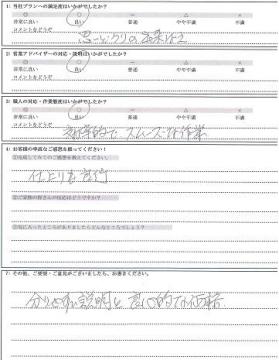 1）当社プランへの満足度はいかがでしたか？
◎ ○ □ △ ×
非常に良い 良い 普通 やや不満 不満
コメントをどうぞ
思った通りの出来ばえ
2）営業アドバイザーの対応・説明はいかがでしたか？
◎ ○ □ △ ×
非常に良い 良い 普通 やや不満 不満
コメントをどうぞ
3）職人の対応・作業態度はいかがでしたか？
◎ ○ □ △ ×
非常に良い 良い 普通 やや不満 不満
コメントをどうぞ
で スムーズな作業
4）お客様の率直なご感想を聞かせてください！
①完成してみてのご感想を教えてください。
仕上りも良好
②ご家族の皆さんの反応はどうですか？
7）その他、ご要望・ご意見がございましたら、お書きください。
分りやすい説明と 良心的な価格